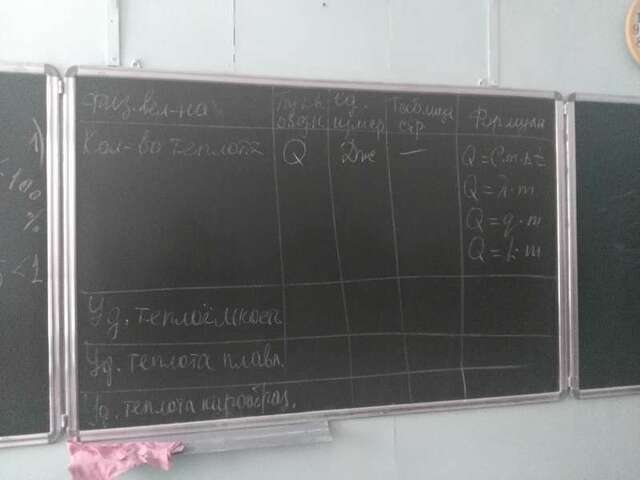 физ. вел-на
Букв. обозн
Ед. измер
Таблица стр
Формула
Кол-во теплота
Q
Дж
—
Q = C·m·Δt
Q = λ·m
Q = q·m
Q = L·m
Уд. теплоёмкость
Уд. теплота плавл.
Уд. теплота парообраз.
1)
100
%
<1